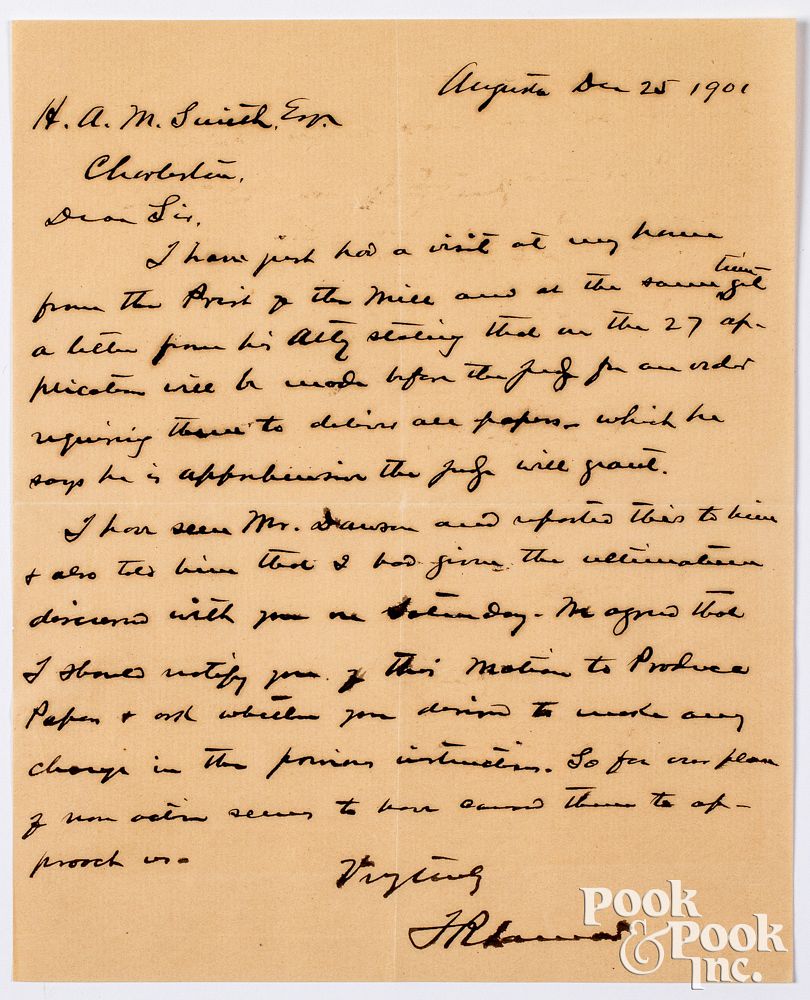 Augusta Dec 25 1901
H. A. M. Smith, Esq.
Charleston.
Dear Sir,
I have just had a visit at my home
from the Prest of the Mill and at the same time get
a letter from his Atty stating that on the 27 ap-
plication will be made before the Judge for an order
requiring them to deliver all papers - which he
says he is apprehensive the judge will grant.
I have seen Mr. Dawson and reported this to him
& also told him that I had given the ultimatum
discussed with you on Saturday - We agreed that
I should notify you of this Motion to Produce
Papers & ask whether you desired to make any
change in the previous instructions. So far our plan
of non action seems to have caused them to ap-
proach us -
Very truly
J R Lamar
POOK
& POOK
INC.